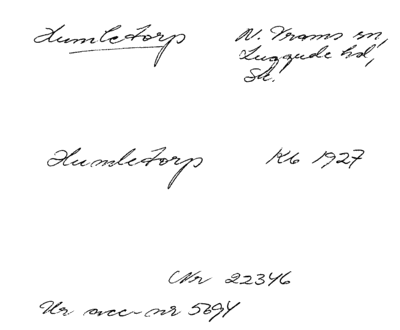 Humletorp N. Vrams sn,
Luggude hd,
Sk.
Humletorp Kb 1927
Nr 22346
Ur acc-nr 5694